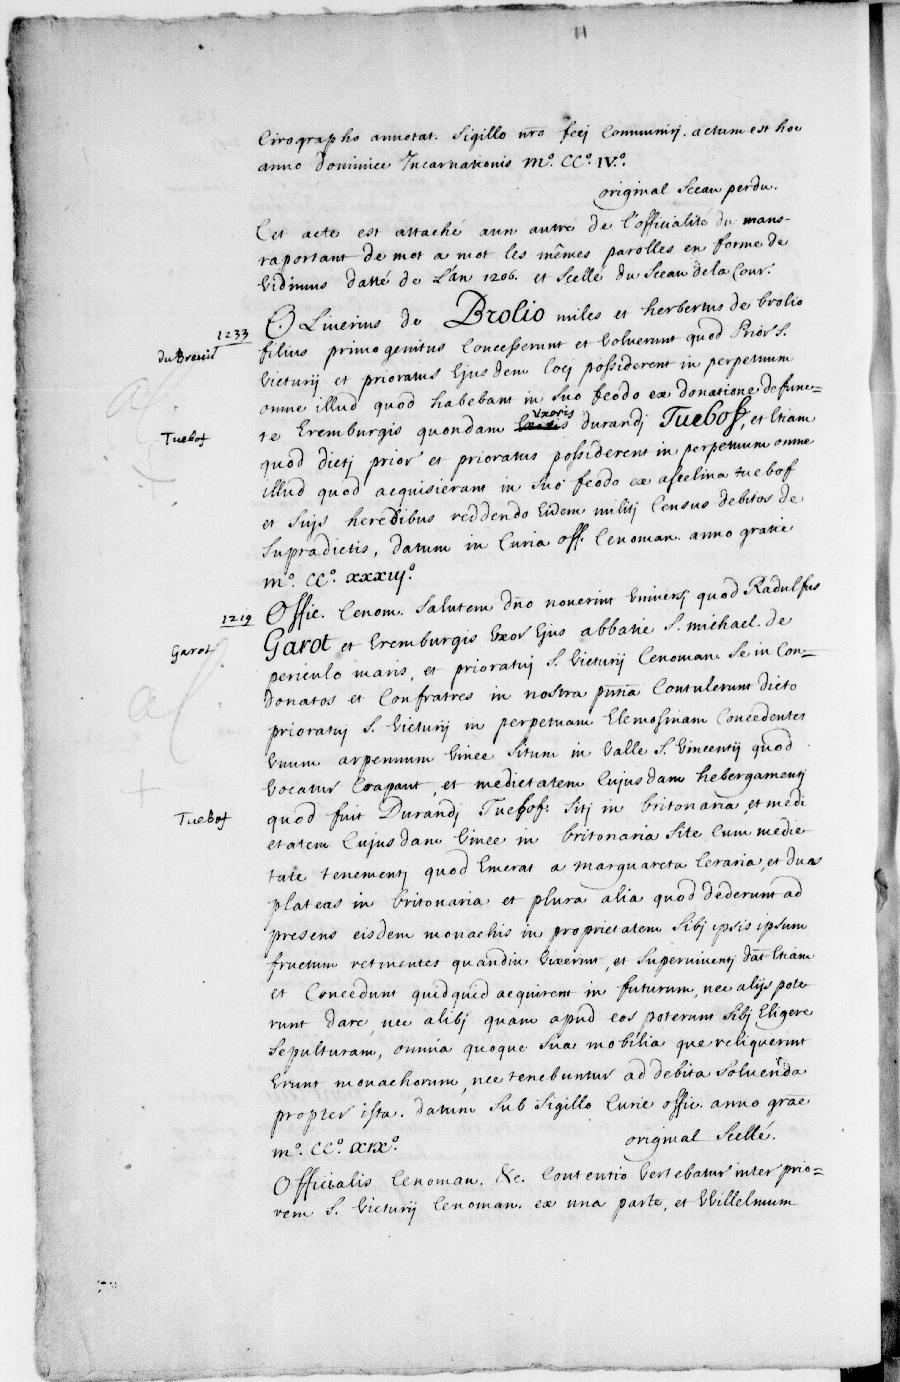 11
Cirographo annotat. Sigillo nr̃o fecj Communirj. actum est hoc
anno Dominice Incarnationis Mº. CCº. IVº.
original Sceau perdu.
Cet acte est attaché aun autre de l'officialité du mans-
raportant de mot a mot les mêmes parolles en forme de
Vidimus datté de L'an 1206. et Scellé du Sceau de la Cour.
1233
OLiverius de Brolio miles et herbertus de brolio
du Breuil
filius primogenitus Concesserunt et voluerunt quod Prior S.
Victurij et prioratus Ejusdem locj possiderent in perpetuum
omne illud quod habebant in Suo feodo ex donatione defunc=
te Eremburgis quondam uxoris durandj Tuebof, et Etiam
Tuebof
quod dictj prior et prioratus possiderent in perpetuum omne
illud quod acquisierant in Suo feodo ex ascelina tuebof
et Suis heredibus reddendo Eidem militj Census debitos de
Supradictis, datum in Curia off. Cenoman. anno gratie
mº. CCº. xxxiijº.
1219
Offic. Cenom. Salutem dño noverint Universj quod Radulfus
Garot et Eremburgis Uxor Ejus abbatie S. michael. de
Garot
periculo maris, et prioratuj S. Victurij Cenoman. Se in Con=
donatos et Confratres in nostra pñtia Contulerunt dicto
prioratuj S. Victurij in perpetuam Elemosinam Concedentes
Unum arpennum Vinee Situm in Valle S. Vincentij quod
Vocatur Crapaut, et medietatem Cujusdam hebergamentj
Tuebof
quod fuit Durandj Tuebof: Sitj in britonaria, et medi
etatem Cujusdam Vinee in britonaria Site Cum medie
tate tenementj quod Emerat a marguareta Ceraria, et duas
plateas in britonaria et plura alia quod dederunt ad
presens eisdem monachis in proprietatem Sibj ipsis ipsum
fructum retinentes quandiu Vixerint, et Superviventj dāt Etiam
et Concedunt quidquid acquirent in futurum, nec alijs pote
runt dare, nec alibj quam apud eos poterunt Sibj Eligere
Sepulturam, omnia quoque Sua mobilia que reliquerint
Erunt monachorum, nec tenebuntur ad debita Solvenda
propter ista. datum Sub Sigillo Curie offic. anno grāe
mº. CCº. xixº.
original Scellé.
Officialis Cenoman. &c. Contentio Vertebatur inter prio=
rem S. Victurij Cenoman. ex una parte, et Willelmum